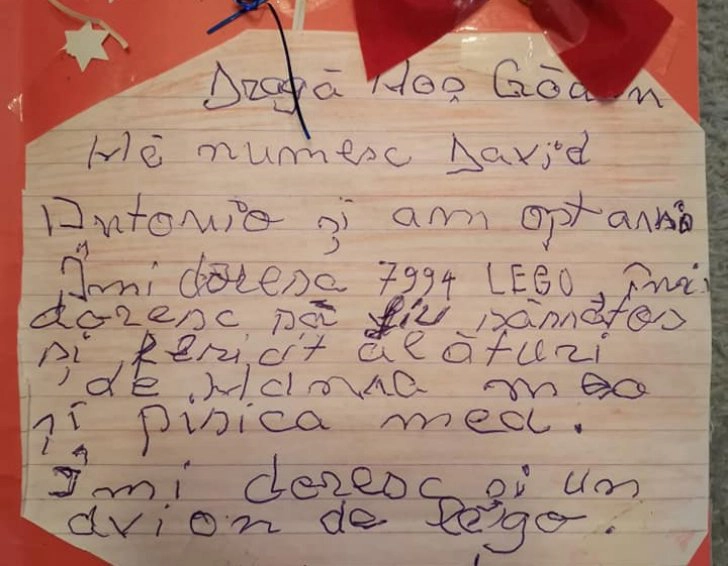 Dragă Moș Crăciun
Mă numesc David
Antonio și am opt anni
Îmi doresc 7994 LEGO, îmi
doresc să fiu sănătos
și fericit alături
de Mama mea
și pisica mea.
Îmi doresc și un
avion de lego.